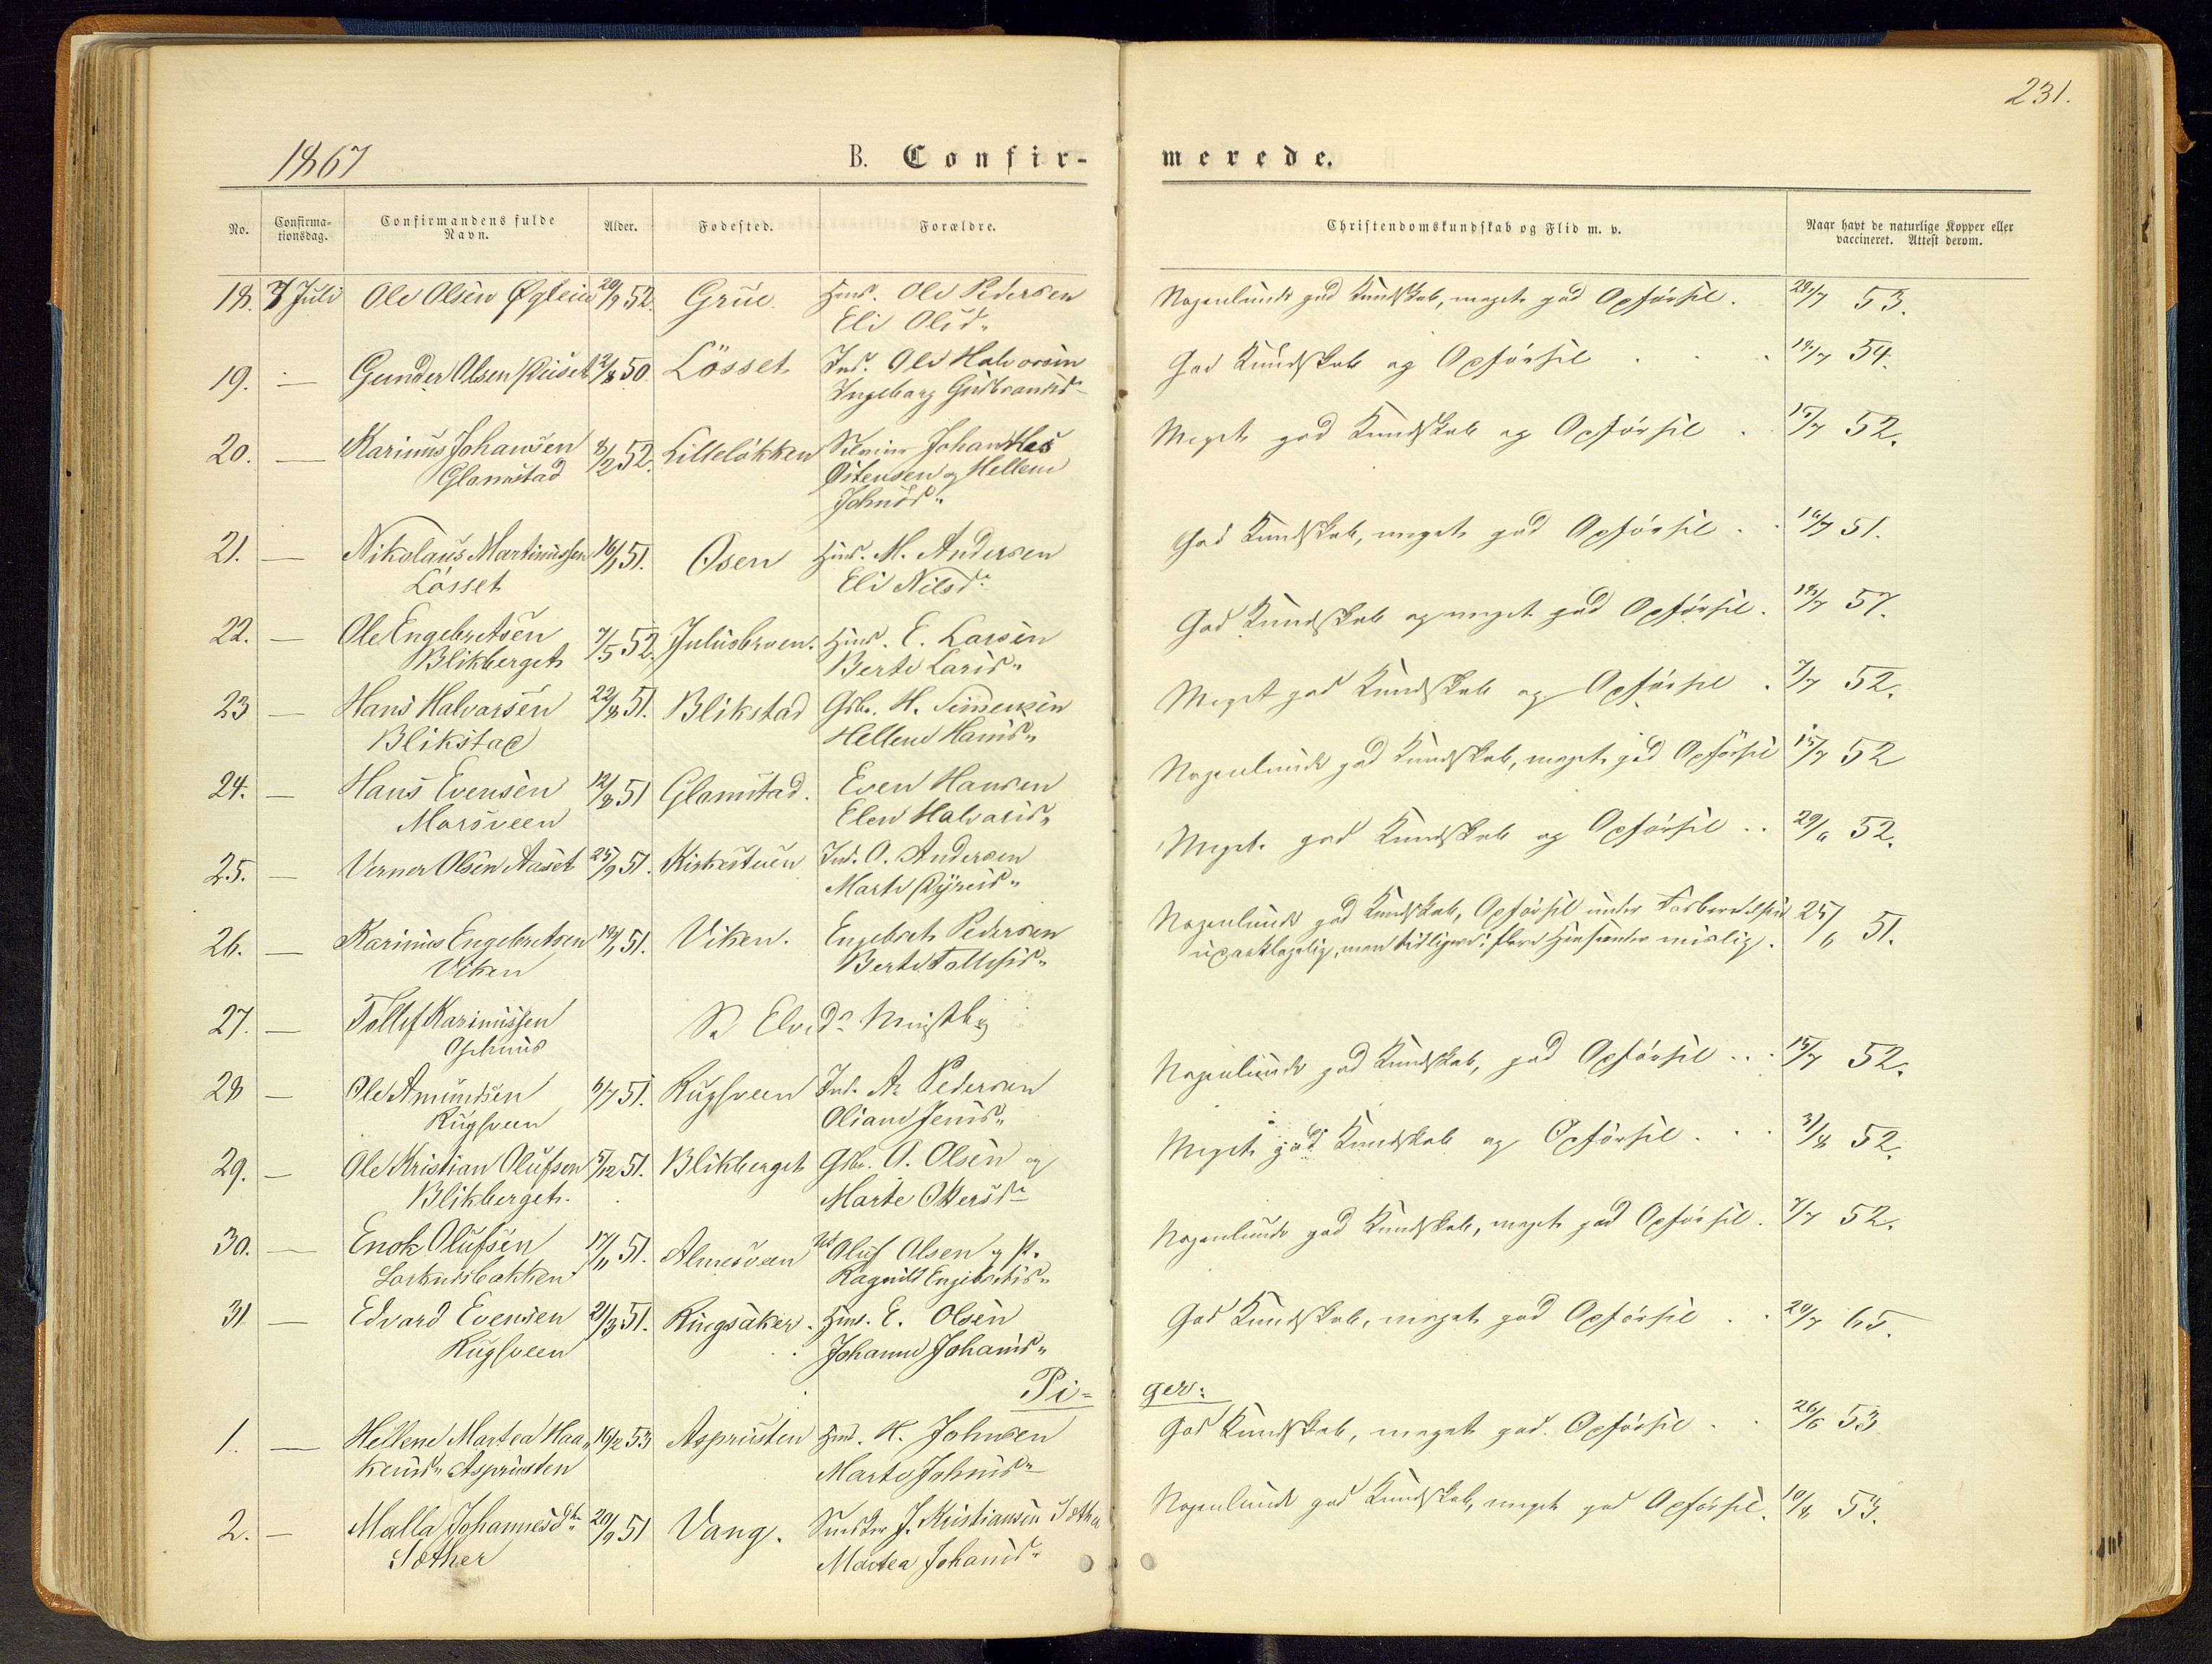 231.
1867
B. Confir-
merede.
No.
Confirma-
tionsdag.
Confirmandens fulde
Navn.
Alder.
Fodested.
Forældre.
Christendomskundskab og Flid m. v.
Naar havt de naturlige Kopper eller
vaccineret. Attest derom.
18. 7 Juli Ole Olsen 20/9 52. Grue. Huusm. Ole Pedersen Nogenlunde god Kundskab, meget god Opførsel. 53.
Eli Olsd.
19. — Gunder Olsen 50. Lösset Ole Halvorsen God Kundskab og Opførsel 54.
Ingeborg Gudbrandsd.
20. — Karinus Johansen 8/2 52. Lilleløkken Johannes Meget god Kundskab og Opførsel 52.
Glomstad Ostensen og Hellene
Johnsd.
21. — Nikolaus Martinussen 16/1 51. Osen Huusm. M. Andersen God Kundskab, meget god Opførsel 51.
Lösset Eli Nilsd.
22. — Ole Engebretsen 7/5 52. Julusbroen. Huusm. E. Larsen God Kundskab og meget god Opførsel. 57.
Blikberget Berte Larsd.
23 — Hans Halvorsen 22/8 51. Blikstad Gbr. H. Simensen Meget god Kundskab og Opførsel 7/7 52.
Blikstad Hellene Hansd.
24. — Hans Evensen 12/8 51 Glomstad. Even Hansen Nogenlunde god Kundskab, meget god Opførsel 15/7 52
Morsveen Elen Halvorsd.
25. — Verner Olsen Aaset 25/9 51. Kirkestuen Ind. O. Andersen Meget god Kundskab og Opførsel 29/6 52.
Marte
26. — Karinus Engebretsen 51. Viken. Engebret Pedersen Nogenlunde god Kundskab, Opførsel under Forberedelsen 25/6 51.
Viken Berte Tollefsd. upaaklagelig, men tidligere i flere Henseender mislig.
27. — Tollef Karinussen S. Elvd.
28 — Ole Amundsen 6/7 51. Rugsveen Ind. A. Pedersen Nogenlunde god Kundskab, god Opførsel 15/7 52.
Rugsveen Oliane Jensd.
29. — Ole Kristian Olufsen 5/12 51. Blikberget Gbr. O. Olsen og Meget god Kundskab og Opførsel. 52.
Blikberget. Marte Ottersd.
30. — Enok Olufsen 17/11 51. Almesveen Oluf Olsen og Nogenlunde god Kundskab, meget god Opførsel. 7/7 52.
Ragnild Engebretsd.
31 — Edvard Evensen 21/3 51. Ringsaker. Huusm. E. Olsen God Kundskab, meget god Opførsel 20/7 65.
Rugsveen Johanne Johansd.
Pi-
ger:
1. — Hellene Martea Haa- 16/2 53 Asprusten Huusm. K. Johnsen God Kundskab, meget god Opførsel 26/6 53
kensd. Asprusten Marte Johnsd.
2. — Malla Johannesd. 20/9 51 Vang. J. Kristiansen Sæther Nogenlunde god Kundskab, meget god Opførsel. 10/8 53.
Sæther Martea Johansd.